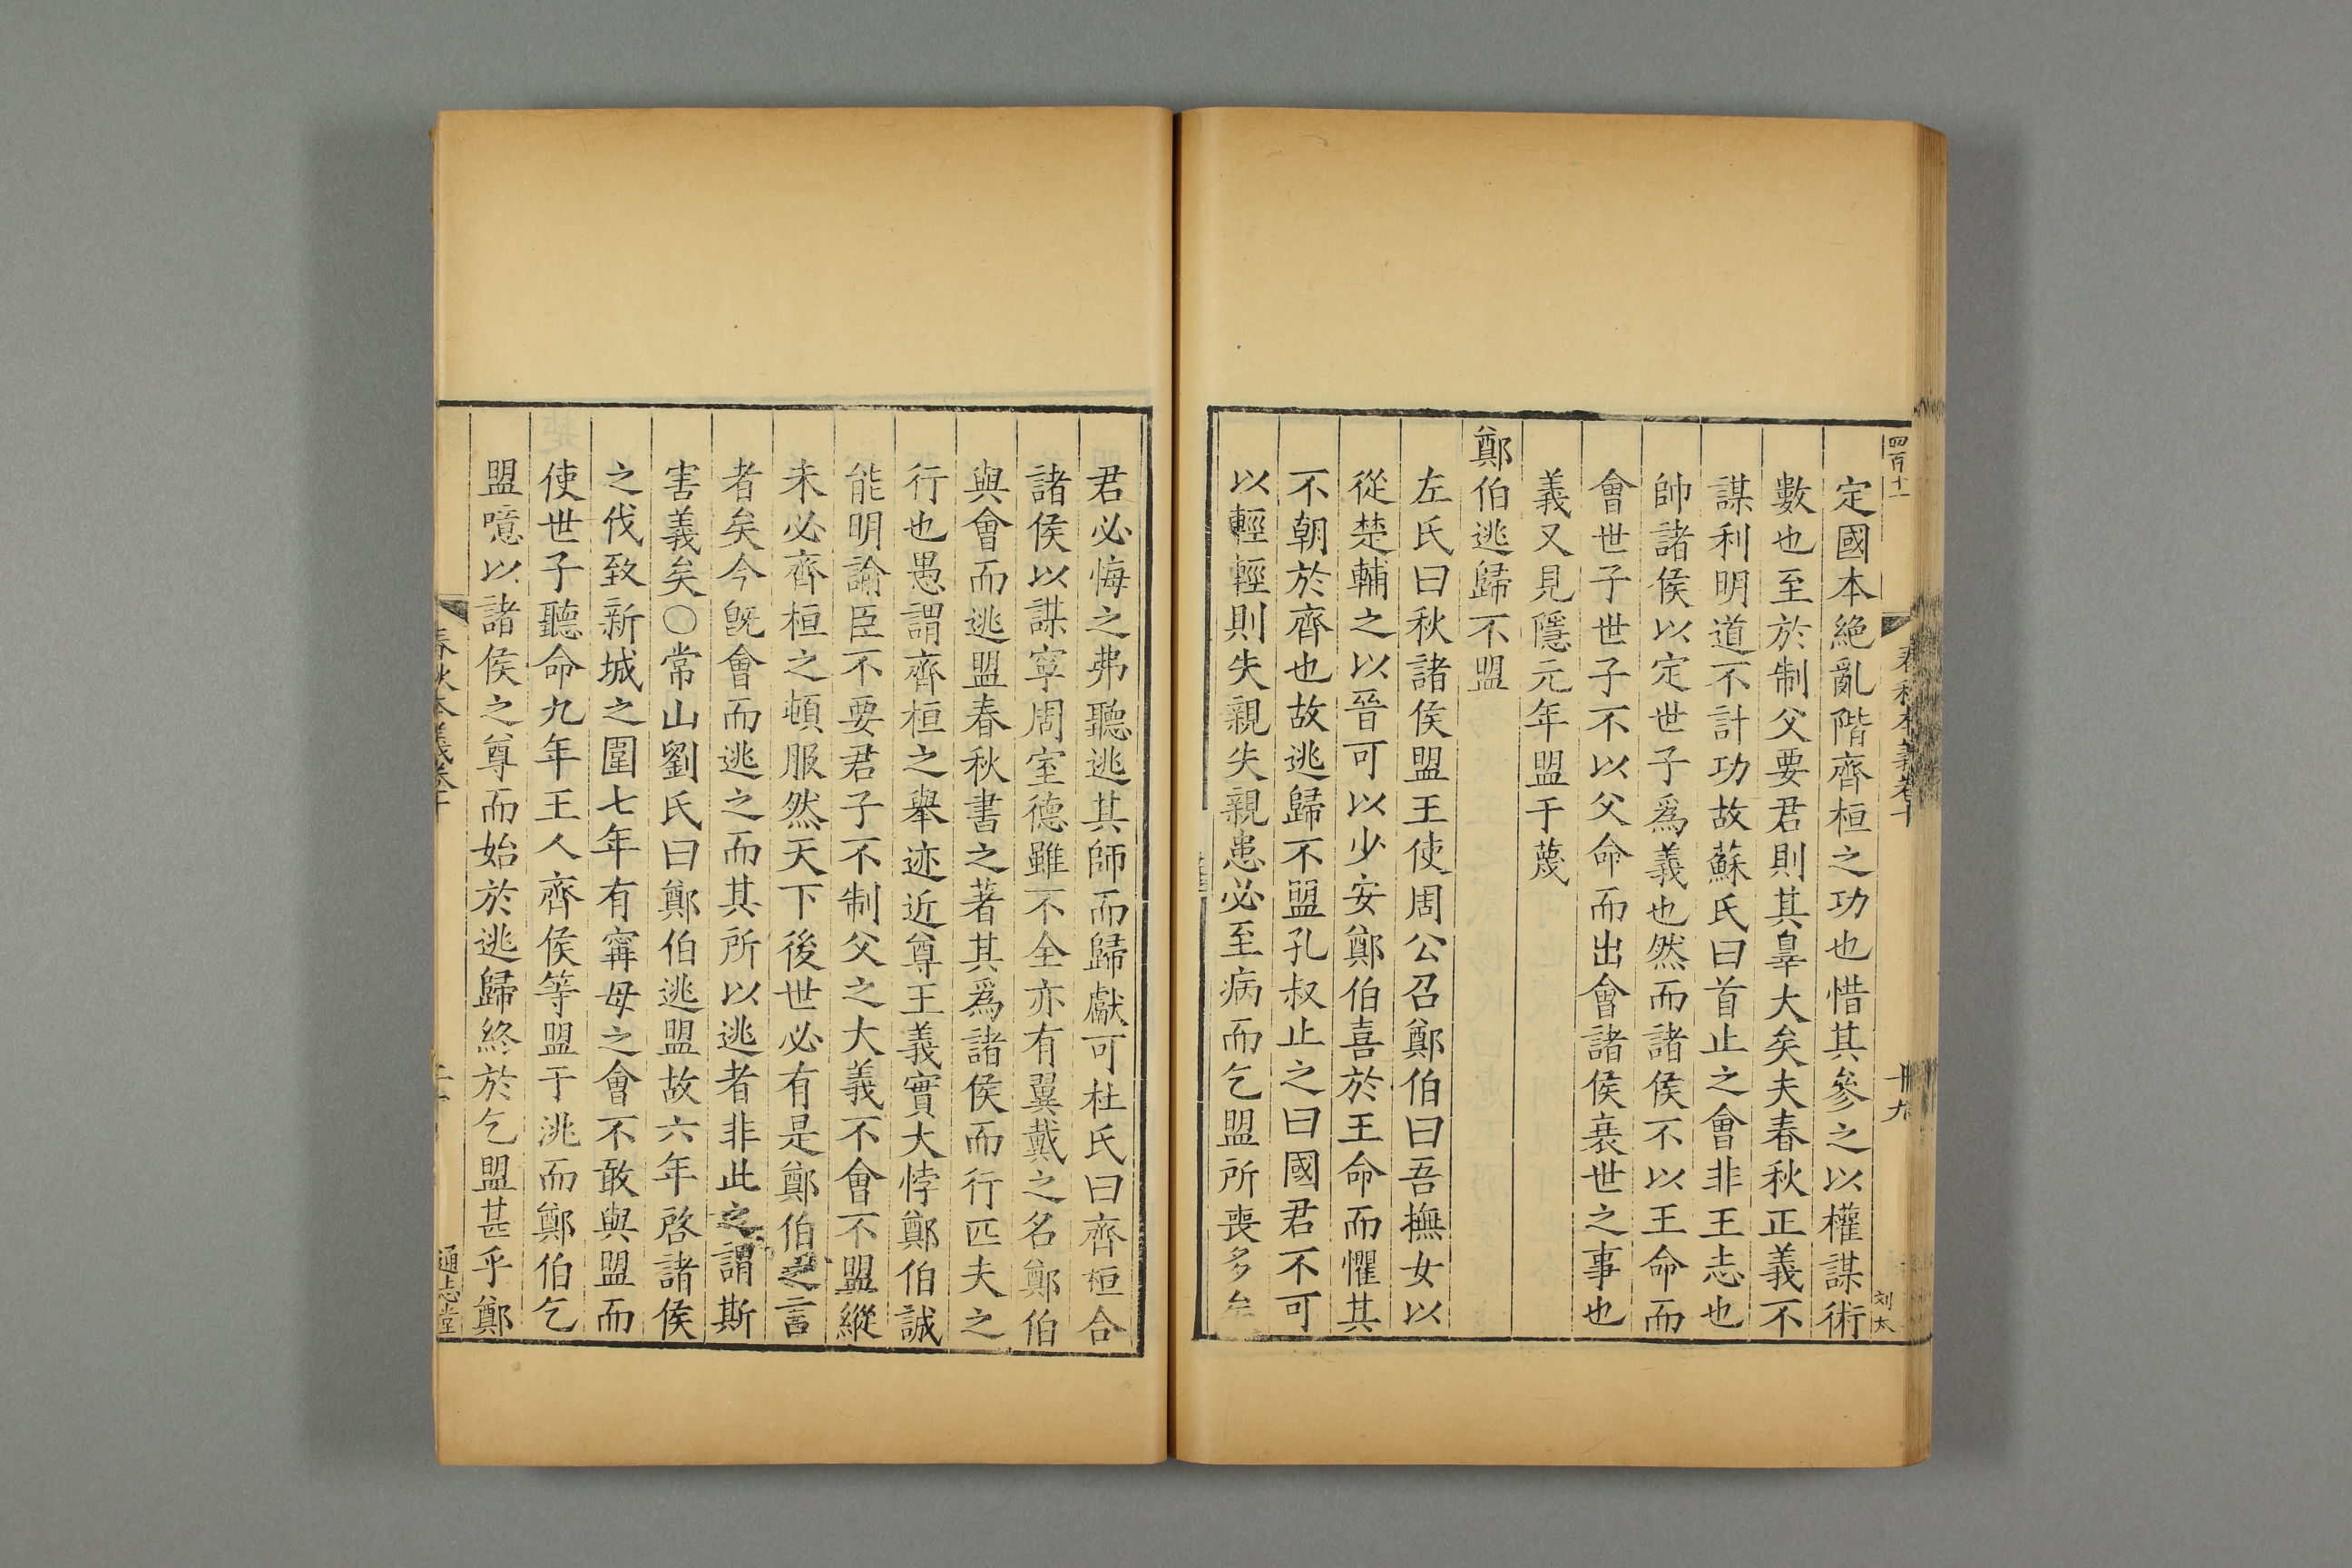 四百十一
春秋本義卷十
十九
刘太
定國本絶亂階齊桓之功也惜其參之以權謀術
數也至於制父要君則其辠大矣夫春秋正義不
謀利明道不計功故蘇氏曰首止之會非王志也
帥諸侯以定世子爲義也然而諸侯不以王命而
會世子世子不以父命而出會諸侯衰世之事也
義又見隱元年盟于蔑
鄭伯逃歸不盟
左氏曰秋諸侯盟王使周公召鄭伯曰吾撫女以
從楚輔之以晉可以少安鄭伯喜於王命而懼其
不朝於齊也故逃歸不盟孔叔止之曰國君不可
以輕輕則失親失親患必至病而乞盟所喪多矣
君必悔之弗聽逃其師而歸獻可杜氏曰齊桓合
諸侯以謀寧周室德雖不全亦有翼戴之名鄭伯
與會而逃盟春秋書之著其爲諸侯而行匹夫之
行也愚謂齊桓之舉迹近尊王義實大悖鄭伯誠
能明諭臣不要君子不制父之大義不會不盟縱
未必齊桓之頓服然天下後世必有是鄭伯之言
者矣今旣會而逃之而其所以逃者非此之謂斯
害義矣○常山劉氏曰鄭伯逃盟故六年啓諸侯
之伐致新城之圍七年有甯母之會不敢與盟而
使世子聽命九年王人齊侯等盟于洮而鄭伯乞
盟噫以諸侯之尊而始於逃歸終於乞盟甚乎鄭
春秋本義卷十
通志堂